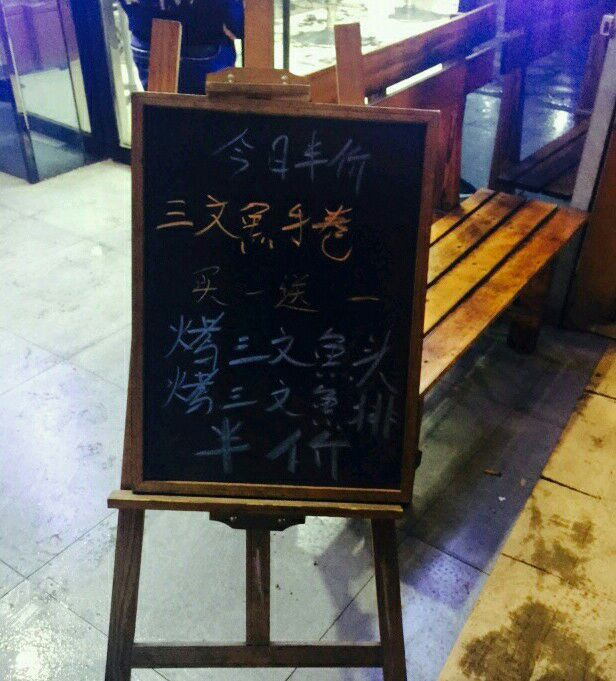 今日半价
三文魚手卷
买一送一
烤三文魚头
烤三文魚排
半价